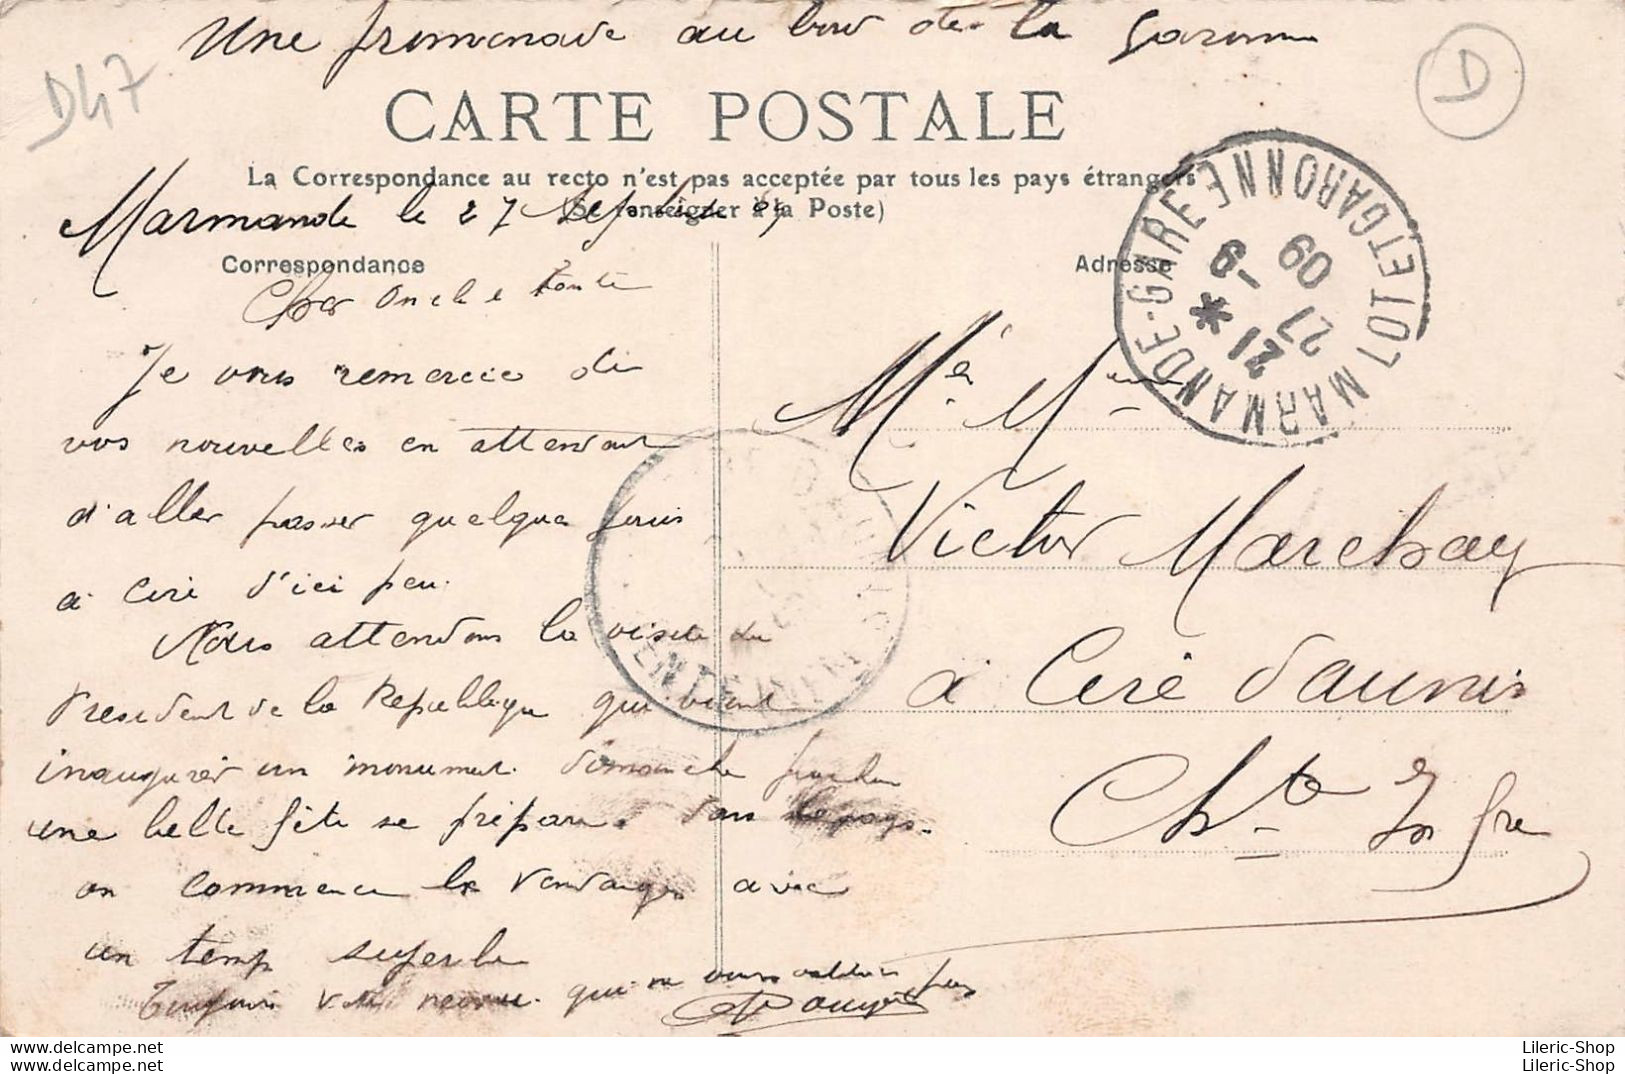 Une promenade au bord de la Garonne
D47
D
CARTE POSTALE
La Correspondance au recto n'est pas acceptée par tous les pays étrangers
(Se renseigner à la Poste)
Marmande le 27 Septembre 09
Correspondance
Adresse
MARMANDE-GARE LOT ET GARONNE
MARMANDE
21 * 27 -9 09
Cher Oncle & Tante
Je vous remercie de
vos nouvelles en attendant
d'aller passer quelque jours
à Ciré d'ici peu.
Nous attendons la visite du
Président de la République qui vient
inaugurer un monument dimanche prochain
une belle fête se prépare dans le pays.
on commence les vendanges avec
un temps superbe
Toujours votre neveu qui ne vous oublie pas
Mr & Mme
Victor Marchay
à Ciré d'aunis
Chte Infre
Lileric-Shop
Lileric-Shop